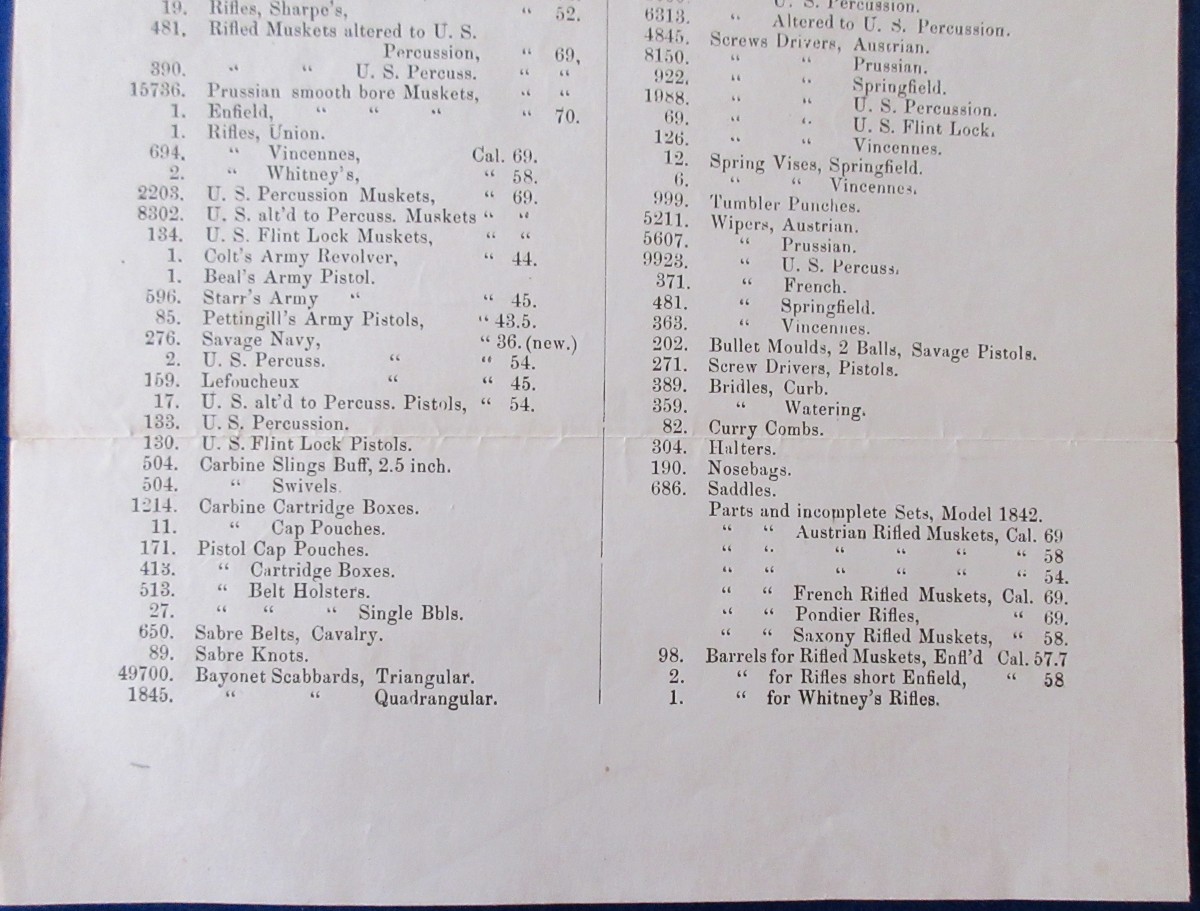 19. Rifles, Sharpe's, “ 52.
481. Rifled Muskets altered to U. S.
Percussion, “ 69,
390. “ “ U. S. Percuss. “ “
15736. Prussian smooth bore Muskets, “ “
1. Enfield, “ “ “ “ 70.
1. Rifles, Union.
694. “ Vincennes, Cal. 69.
2. “ Whitney's, “ 58.
2203. U. S. Percussion Muskets, “ 69.
8302. U. S. alt'd to Percuss. Muskets “ “
134. U. S. Flint Lock Muskets, “ “
1. Colt's Army Revolver, “ 44.
1. Beal's Army Pistol.
596. Starr's Army “ “ 45.
85. Pettingill's Army Pistols, “ 43.5.
276. Savage Navy, “ 36. (new.)
2. U. S. Percuss. “ “ 54.
159. Lefoucheux “ “ 45.
17. U. S. alt'd to Percuss. Pistols, “ 54.
133. U. S. Percussion.
130. U. S. Flint Lock Pistols.
504. Carbine Slings Buff, 2.5 inch.
504. “ Swivels.
1214. Carbine Cartridge Boxes.
11. “ Cap Pouches.
171. Pistol Cap Pouches.
413. “ Cartridge Boxes.
513. “ Belt Holsters.
27. “ “ “ Single Bbls.
650. Sabre Belts, Cavalry.
89. Sabre Knots.
49700. Bayonet Scabbards, Triangular.
1845. “ “ Quadrangular.
U. S. Percussion.
6313. “ Altered to U. S. Percussion.
4845. Screws Drivers, Austrian.
8150. “ “ Prussian.
922. “ “ Springfield.
1988. “ “ U. S. Percussion.
69. “ “ U. S. Flint Lock.
126. “ “ Vincennes.
12. Spring Vises, Springfield.
6. “ “ Vincennes.
999. Tumbler Punches.
5211. Wipers, Austrian.
5607. “ Prussian.
9923. “ U. S. Percuss.
371. “ French.
481. “ Springfield.
363. “ Vincennes.
202. Bullet Moulds, 2 Balls, Savage Pistols.
271. Screw Drivers, Pistols.
389. Bridles, Curb.
359. “ Watering.
82. Curry Combs.
304. Halters.
190. Nosebags.
686. Saddles.
Parts and incomplete Sets, Model 1842.
“ “ Austrian Rifled Muskets, Cal. 69
“ “ “ “ “ “ 58
“ “ “ “ “ “ 54.
“ “ French Rifled Muskets, Cal. 69.
“ “ Pondier Rifles, “ 69.
“ “ Saxony Rifled Muskets, “ 58.
98. Barrels for Rifled Muskets, Enfl'd Cal. 57.7
2. “ for Rifles short Enfield, “ 58
1. “ for Whitney's Rifles.